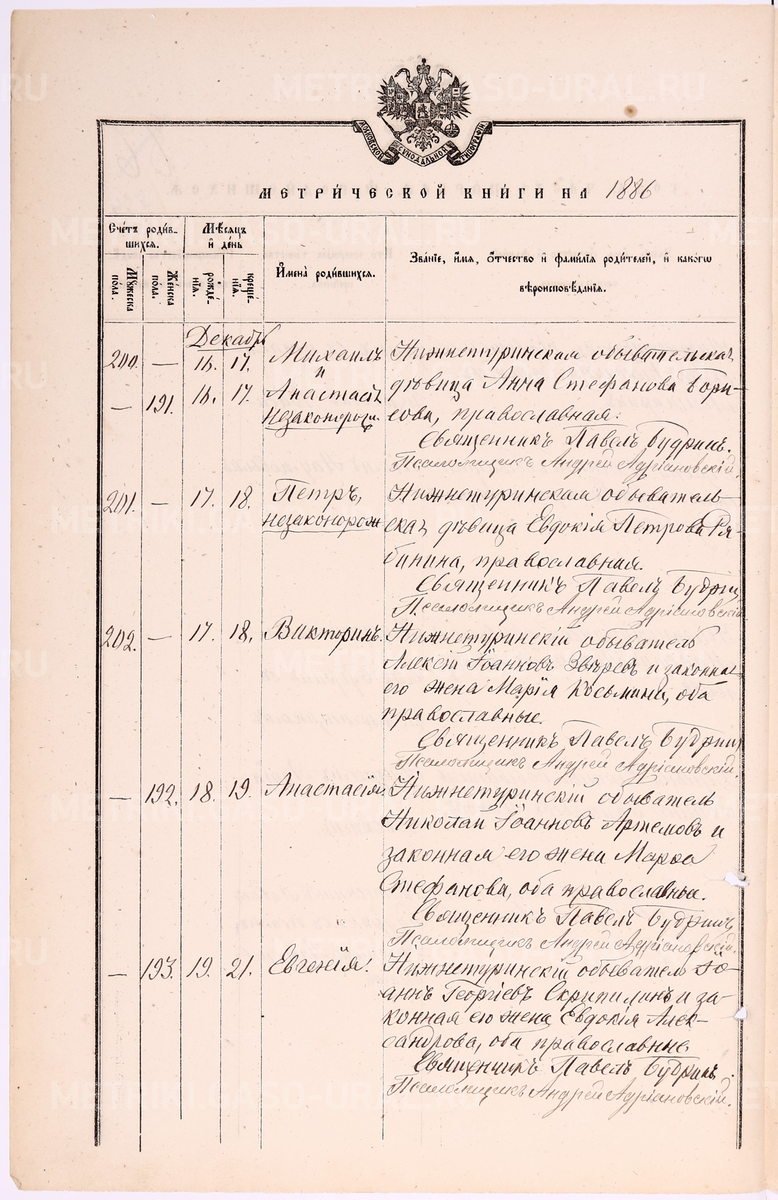 МОСКОВСКОЙ СѴНОДАЛЬНОЙ ТИПОГРАФІИ
МЕТРИ́ЧЕСКОЙ КНИ́ГИ НА 1886
Сче́тъ роди́вшихся.
Мѣ́сяцъ и́ де́нь
Имена̀ роди́вшихся.
Зва́нїе, и́мя, ѻ́тчество и́ фами́лїя роди́телей, и́ како́гѡ вѣроисповѣ́данїя.
Мꙋ́жеска по́ла.
Же́нска по́ла.
рожде́нїя.
креще́нїя.
Декабрь
200. — 16. 17. Михаилъ Нижнетуринская обывательская
и
— 191. 16. 17. Анастасія дѣвица Анна Стефанова Бори-
незаконорож. сова, православная.
Священникъ Павелъ Будринъ.
Псаломщикъ Андрей Адріановскій.
201. — 17. 18. Петръ, Нижнетуринская обыватель-
незаконорож ская дѣвица Евдокія Петрова Ря-
бинина, православная.
Священникъ Павелъ Будрин
Псаломщикъ Андрей Адріановскій
202. — 17. 18. Викторинъ. Нижнетуринскій обыватель
Алексій Іоанновъ Звѣревъ и законная
его жена Марія Косьмина, оба
православные.
Священникъ Павелъ Будрин
Псаломщикъ Андрей Адріановскій.
— 192. 18. 19. Анастасія. Нижнетуринскій обыватель
Николай Іоанновъ Артемовъ и
законная его жена Марѳа
Стефанова, оба православные.
Священникъ Павелъ Будринъ
Псаломщикъ Андрей Адріановскій.
— 193. 19. 21. Евгенія. Нижнетуринскій обыватель Іо-
аннъ Георгіевъ Скрипилинъ и за-
конная его жена Евдокія Алек-
сандрова, оба православные.
Священникъ Павелъ Будринъ.
Псаломщикъ Андрей Адріановскій.